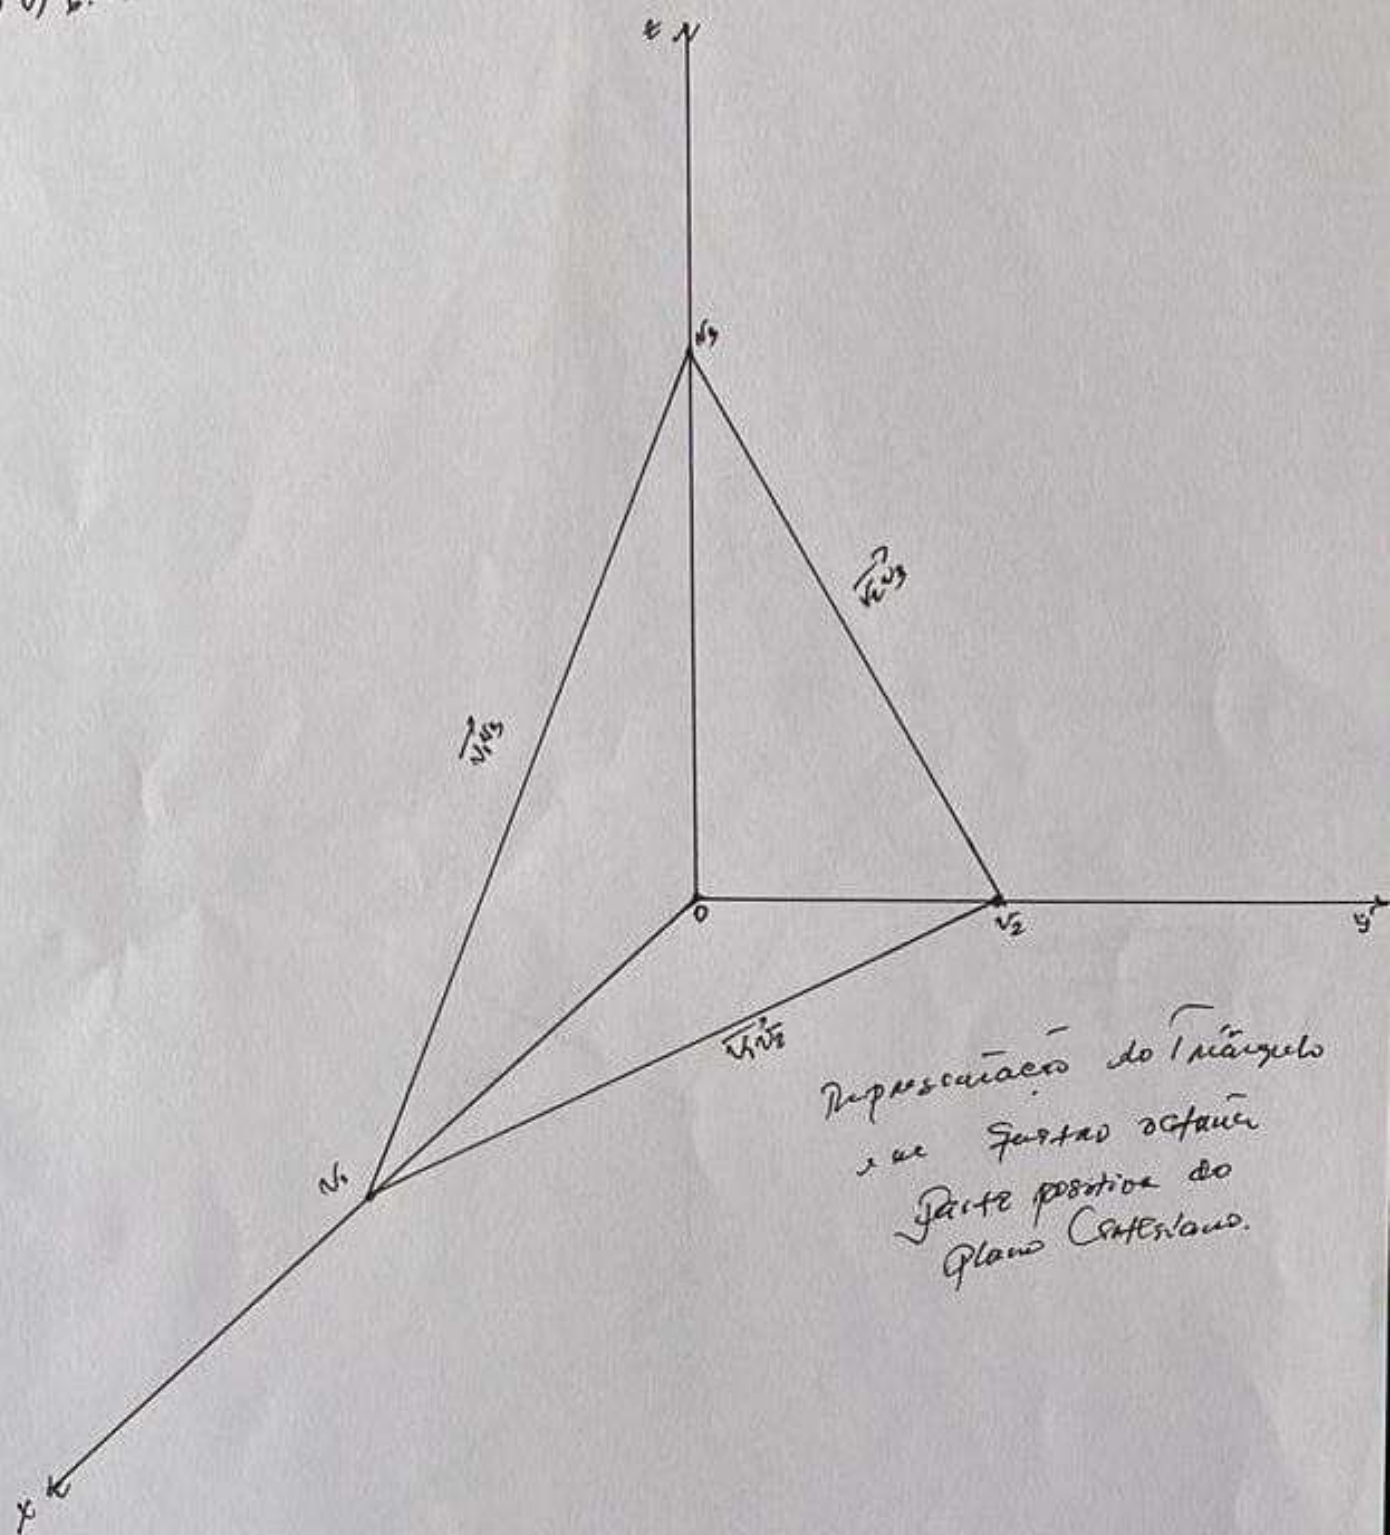 z
V₃
V₂V₃
V₁V₃
O
V₂
y
V₁V₂
V₁
Representação do Triângulo
octante
Parte positiva do
plano Cartesiano.
x